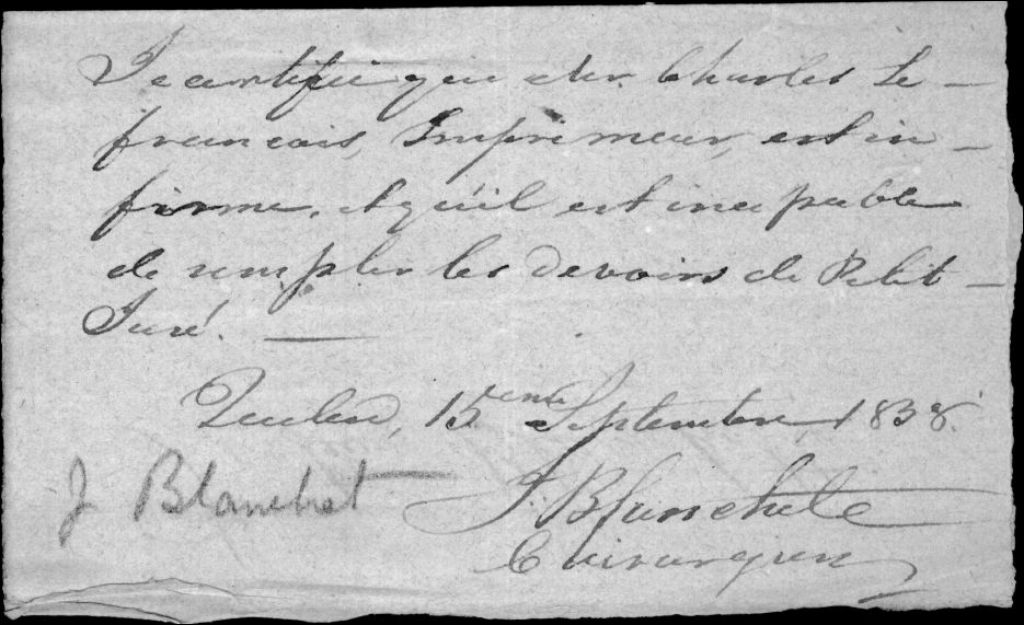 Je certifie que Mr. Charles Le-
francois, Imprimeur, est in-
firme, et qu'il est incapable
de remplir les devoirs de Petit-
Juré. —
Quebec, 15eme Septembre, 1838.
J Blanchet
J. Blanchet
Chirurgien